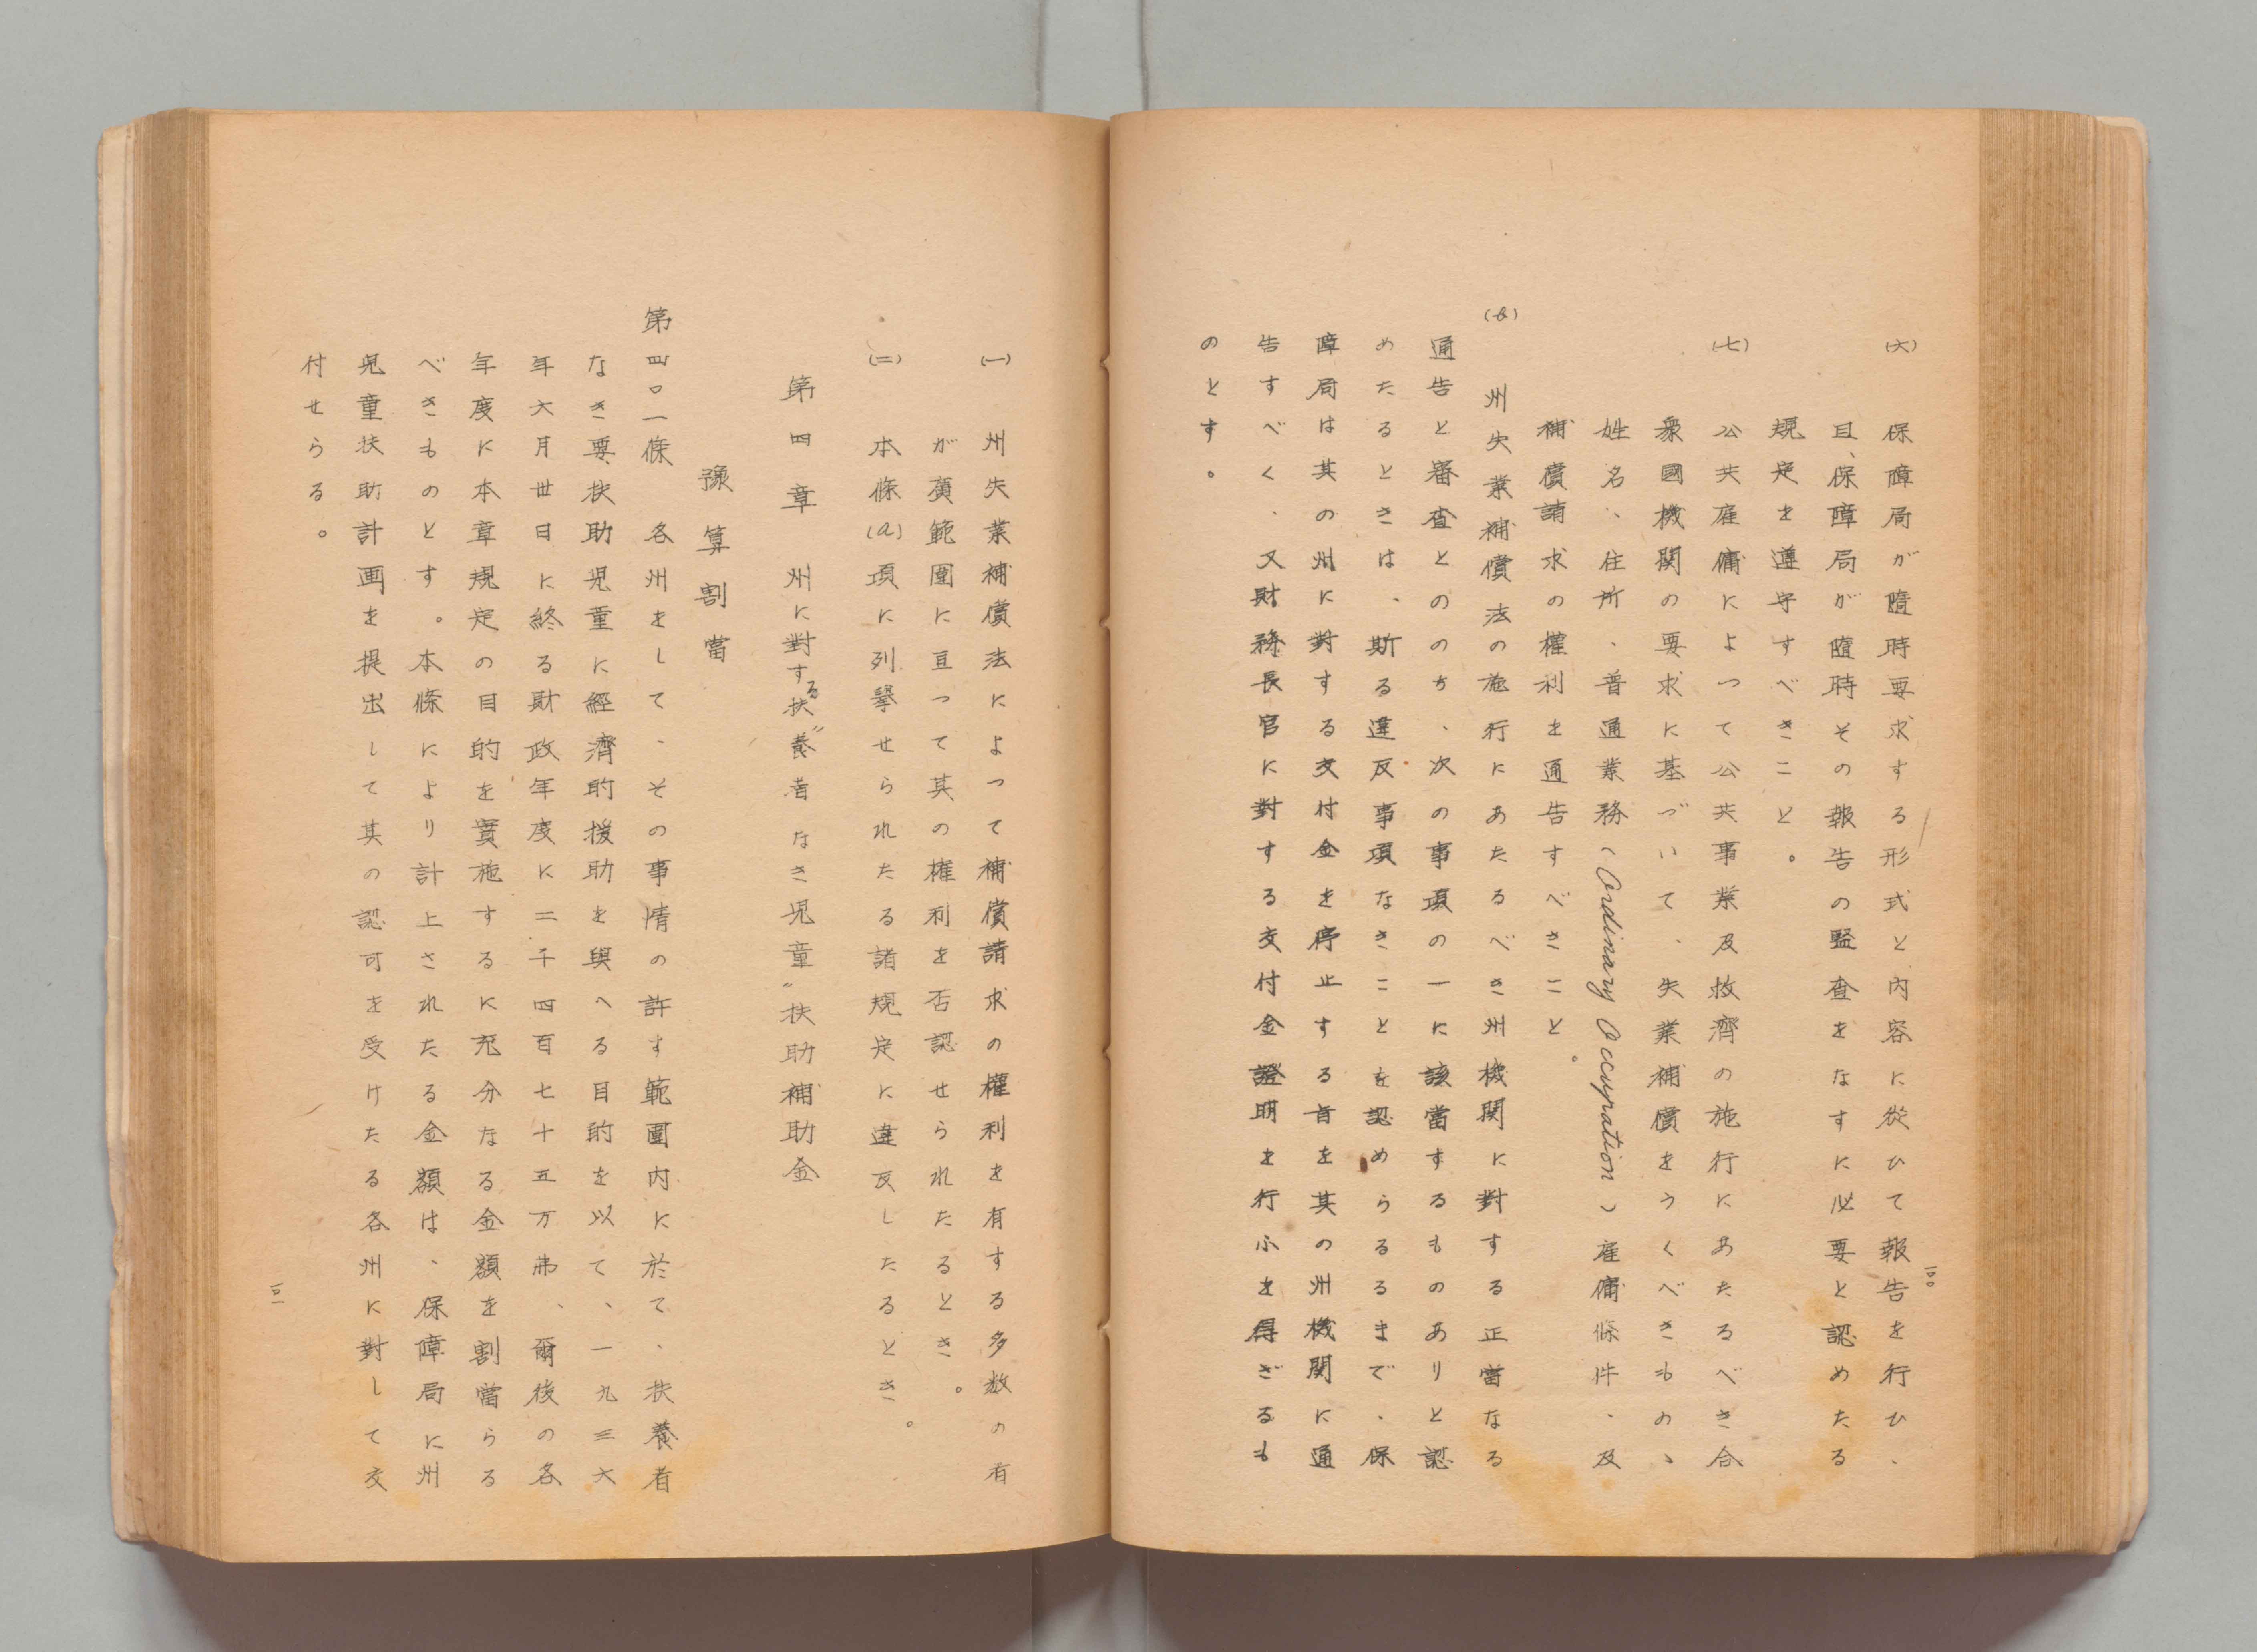 (六)
保障局が隨時要求する形式と內容に從ひて報告を行ひ、
且、保障局が隨時その報告の監査をなすに必要と認めたる
規定を遵守すべきこと。
(七)
公共雇傭によつて公共事業及救濟の施行にあたるべき合
衆國機関の要求に基づいて、失業補償をうくべきものゝ
姓名、住所、普通業務(Ordinary Occupation)雇傭條件、及
補償請求の權利を通告すべきこと。
(b)
州失業補償法の施行にあたるべき州機関に對する正當なる
通告と審査とののち、次の事項の一に該當するものありと認
めたるときは、斯る違反事項なきことを認めらるるまで、保
障局は其の州に對する交付金を停止する旨を其の州機関に通
告すべく、又財務長官に對する交付金證明を行ふを得ざるも
のとす。
一〇〇
(一)
州失業補償法によつて補償請求の權利を有する多数の者
が廣範圍に亘つて其の権利を否認せられたるとき。
(二)
本條(a)項に列擧せられたる諸規定に違反したるとき。
第四章 州に對する扶〝養者なき児童〟扶助補助金
豫算割當
第四〇一條 各州をして、その事情の許す範圍内に於て、扶養者
なき要扶助児童に經濟的援助を與へる目的を以て、一九三六
年六月卅日に終る財政年度に二千四百七十五万弗、爾後の各
年度に本章規定の目的を實施するに充分なる金額を割當らる
べきものとす。本條により計上されたる金額は、保障局に州
児童扶助計画を提出して其の認可を受けたる各州に對して交
付せらる。
一〇一